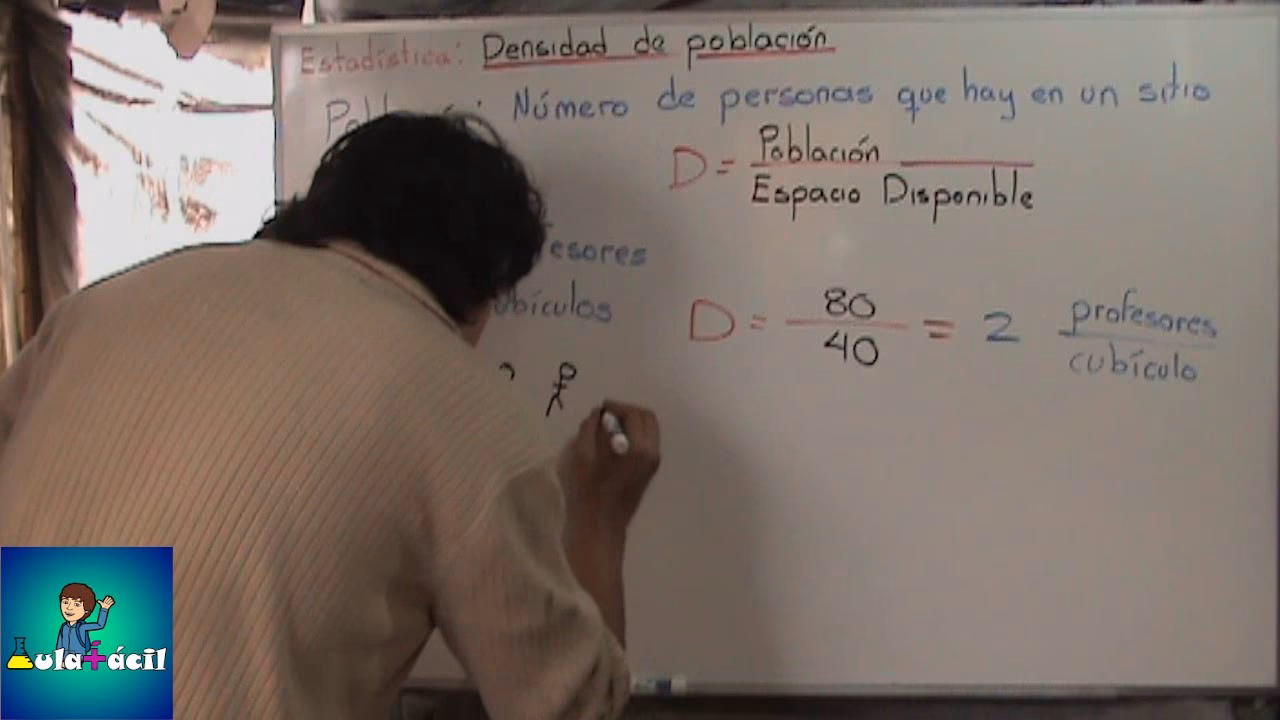 Estadística: Densidad de población
Número de personas que hay en un sitio
D = Población
Espacio Disponible
D = 80 = 2 profesores
40 cubículo
Aula+ácil